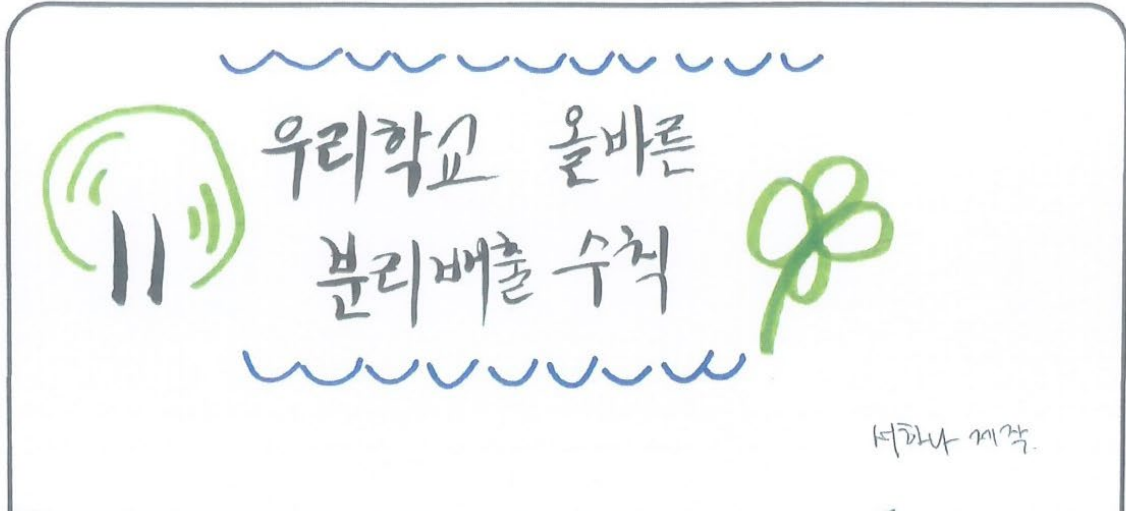 우리학교 올바른
분리배출 수칙
서하나 제작.